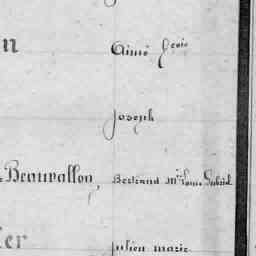 n Aimé frois
Joseph
Beauvallon, Bertrand Mie Louis Gabriel
er Julien marie